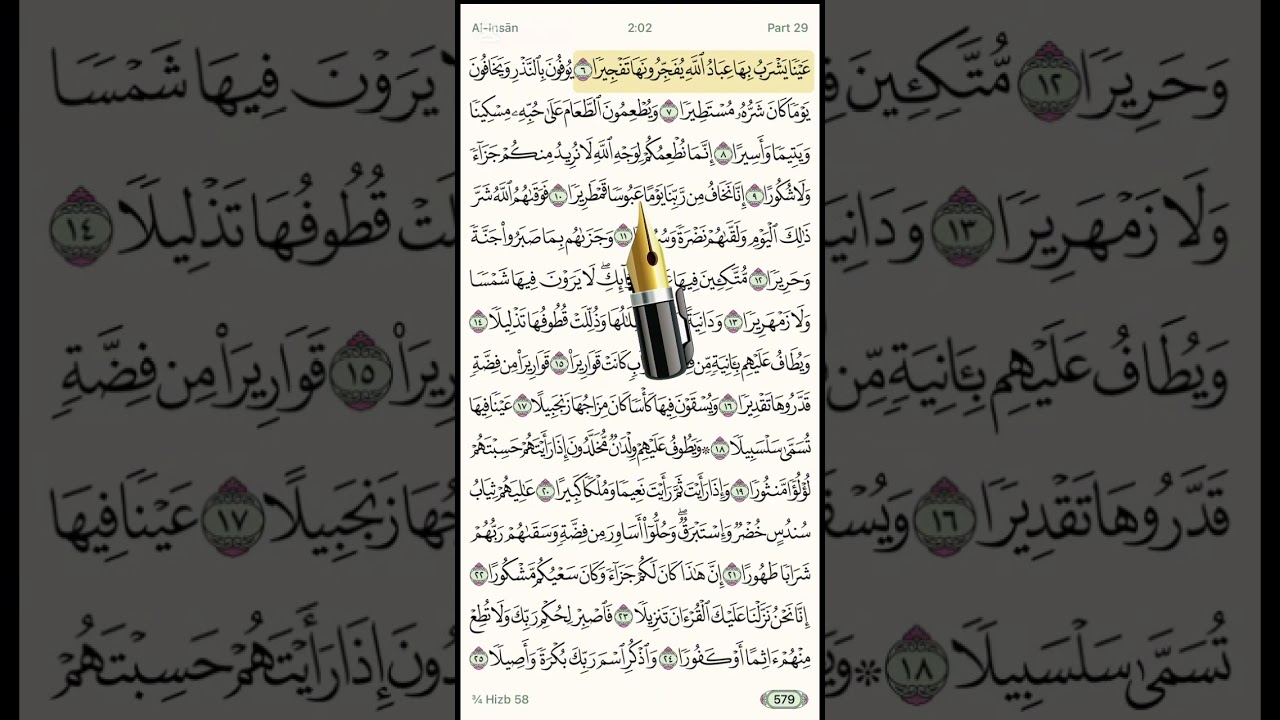 Al-Insān 2:02 Part 29
عَيْنًا يَشْرَبُ بِهَا عِبَادُ ٱللَّهِ يُفَجِّرُونَهَا تَفْجِيرًا ٦ يُوفُونَ بِٱلنَّذْرِ وَيَخَافُونَ
يَوْمًا كَانَ شَرُّهُۥ مُسْتَطِيرًا ٧ وَيُطْعِمُونَ ٱلطَّعَامَ عَلَىٰ حُبِّهِۦ مِسْكِينًا
وَيَتِيمًا وَأَسِيرًا ٨ إِنَّمَا نُطْعِمُكُمْ لِوَجْهِ ٱللَّهِ لَا نُرِيدُ مِنكُمْ جَزَآءً
وَلَا شُكُورًا ٩ إِنَّا نَخَافُ مِن رَّبِّنَا يَوْمًا عَبُوسًا قَمْطَرِيرًا ١٠ فَوَقَىٰهُمُ ٱللَّهُ شَرَّ
ذَٰلِكَ ٱلْيَوْمِ وَلَقَّىٰهُمْ نَضْرَةً ١١ وَجَزَىٰهُم بِمَا صَبَرُوا۟ جَنَّةً
وَحَرِيرًا ١٢ مُّتَّكِـِٔينَ فِيهَا لَا يَرَوْنَ فِيهَا شَمْسًا
وَلَا زَمْهَرِيرًا ١٣ وَدَانِيَةً وَذُلِّلَتْ قُطُوفُهَا تَذْلِيلًا ١٤
وَيُطَافُ عَلَيْهِم بِـَٔانِيَةٍ مِّن كَانَتْ قَوَارِيرَا۠ ١٥ قَوَارِيرَا۟ مِن فِضَّةٍ
قَدَّرُوهَا تَقْدِيرًا ١٦ وَيُسْقَوْنَ فِيهَا كَأْسًا كَانَ مِزَاجُهَا زَنجَبِيلًا ١٧ عَيْنًا فِيهَا
تُسَمَّىٰ سَلْسَبِيلًا ١٨ ۞ وَيَطُوفُ عَلَيْهِمْ وِلْدَٰنٌ مُّخَلَّدُونَ إِذَا رَأَيْتَهُمْ حَسِبْتَهُمْ
لُؤْلُؤًا مَّنثُورًا ١٩ وَإِذَا رَأَيْتَ ثَمَّ رَأَيْتَ نَعِيمًا وَمُلْكًا كَبِيرًا ٢٠ عَٰلِيَهُمْ ثِيَابُ
سُندُسٍ خُضْرٌ وَإِسْتَبْرَقٌ ۖ وَحُلُّوٓا۟ أَسَاوِرَ مِن فِضَّةٍ وَسَقَىٰهُمْ رَبُّهُمْ
شَرَابًا طَهُورًا ٢١ إِنَّ هَٰذَا كَانَ لَكُمْ جَزَآءً وَكَانَ سَعْيُكُم مَّشْكُورًا ٢٢
إِنَّا نَحْنُ نَزَّلْنَا عَلَيْكَ ٱلْقُرْءَانَ تَنزِيلًا ٢٣ فَٱصْبِرْ لِحُكْمِ رَبِّكَ وَلَا تُطِعْ
مِنْهُمْ ءَاثِمًا أَوْ كَفُورًا ٢٤ وَٱذْكُرِ ٱسْمَ رَبِّكَ بُكْرَةً وَأَصِيلًا ٢٥
¾ Hizb 58 579